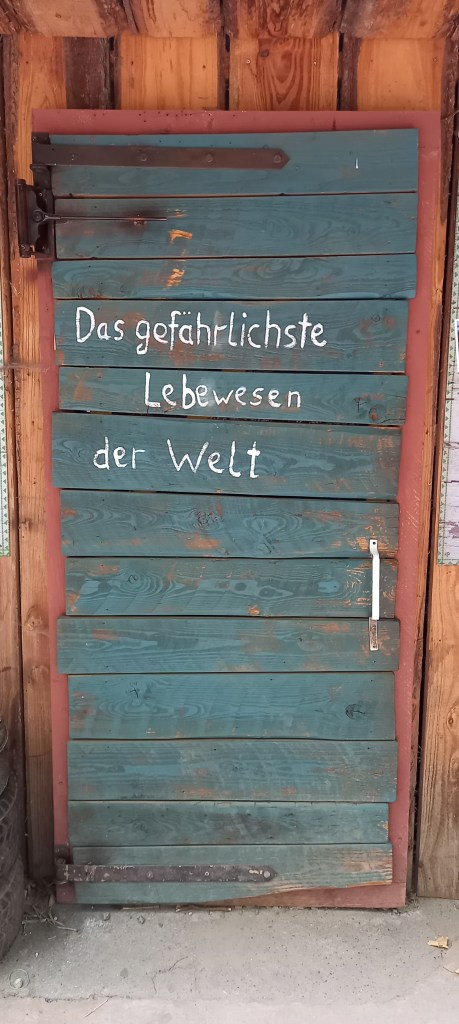 Das gefährlichste
Lebewesen
der Welt